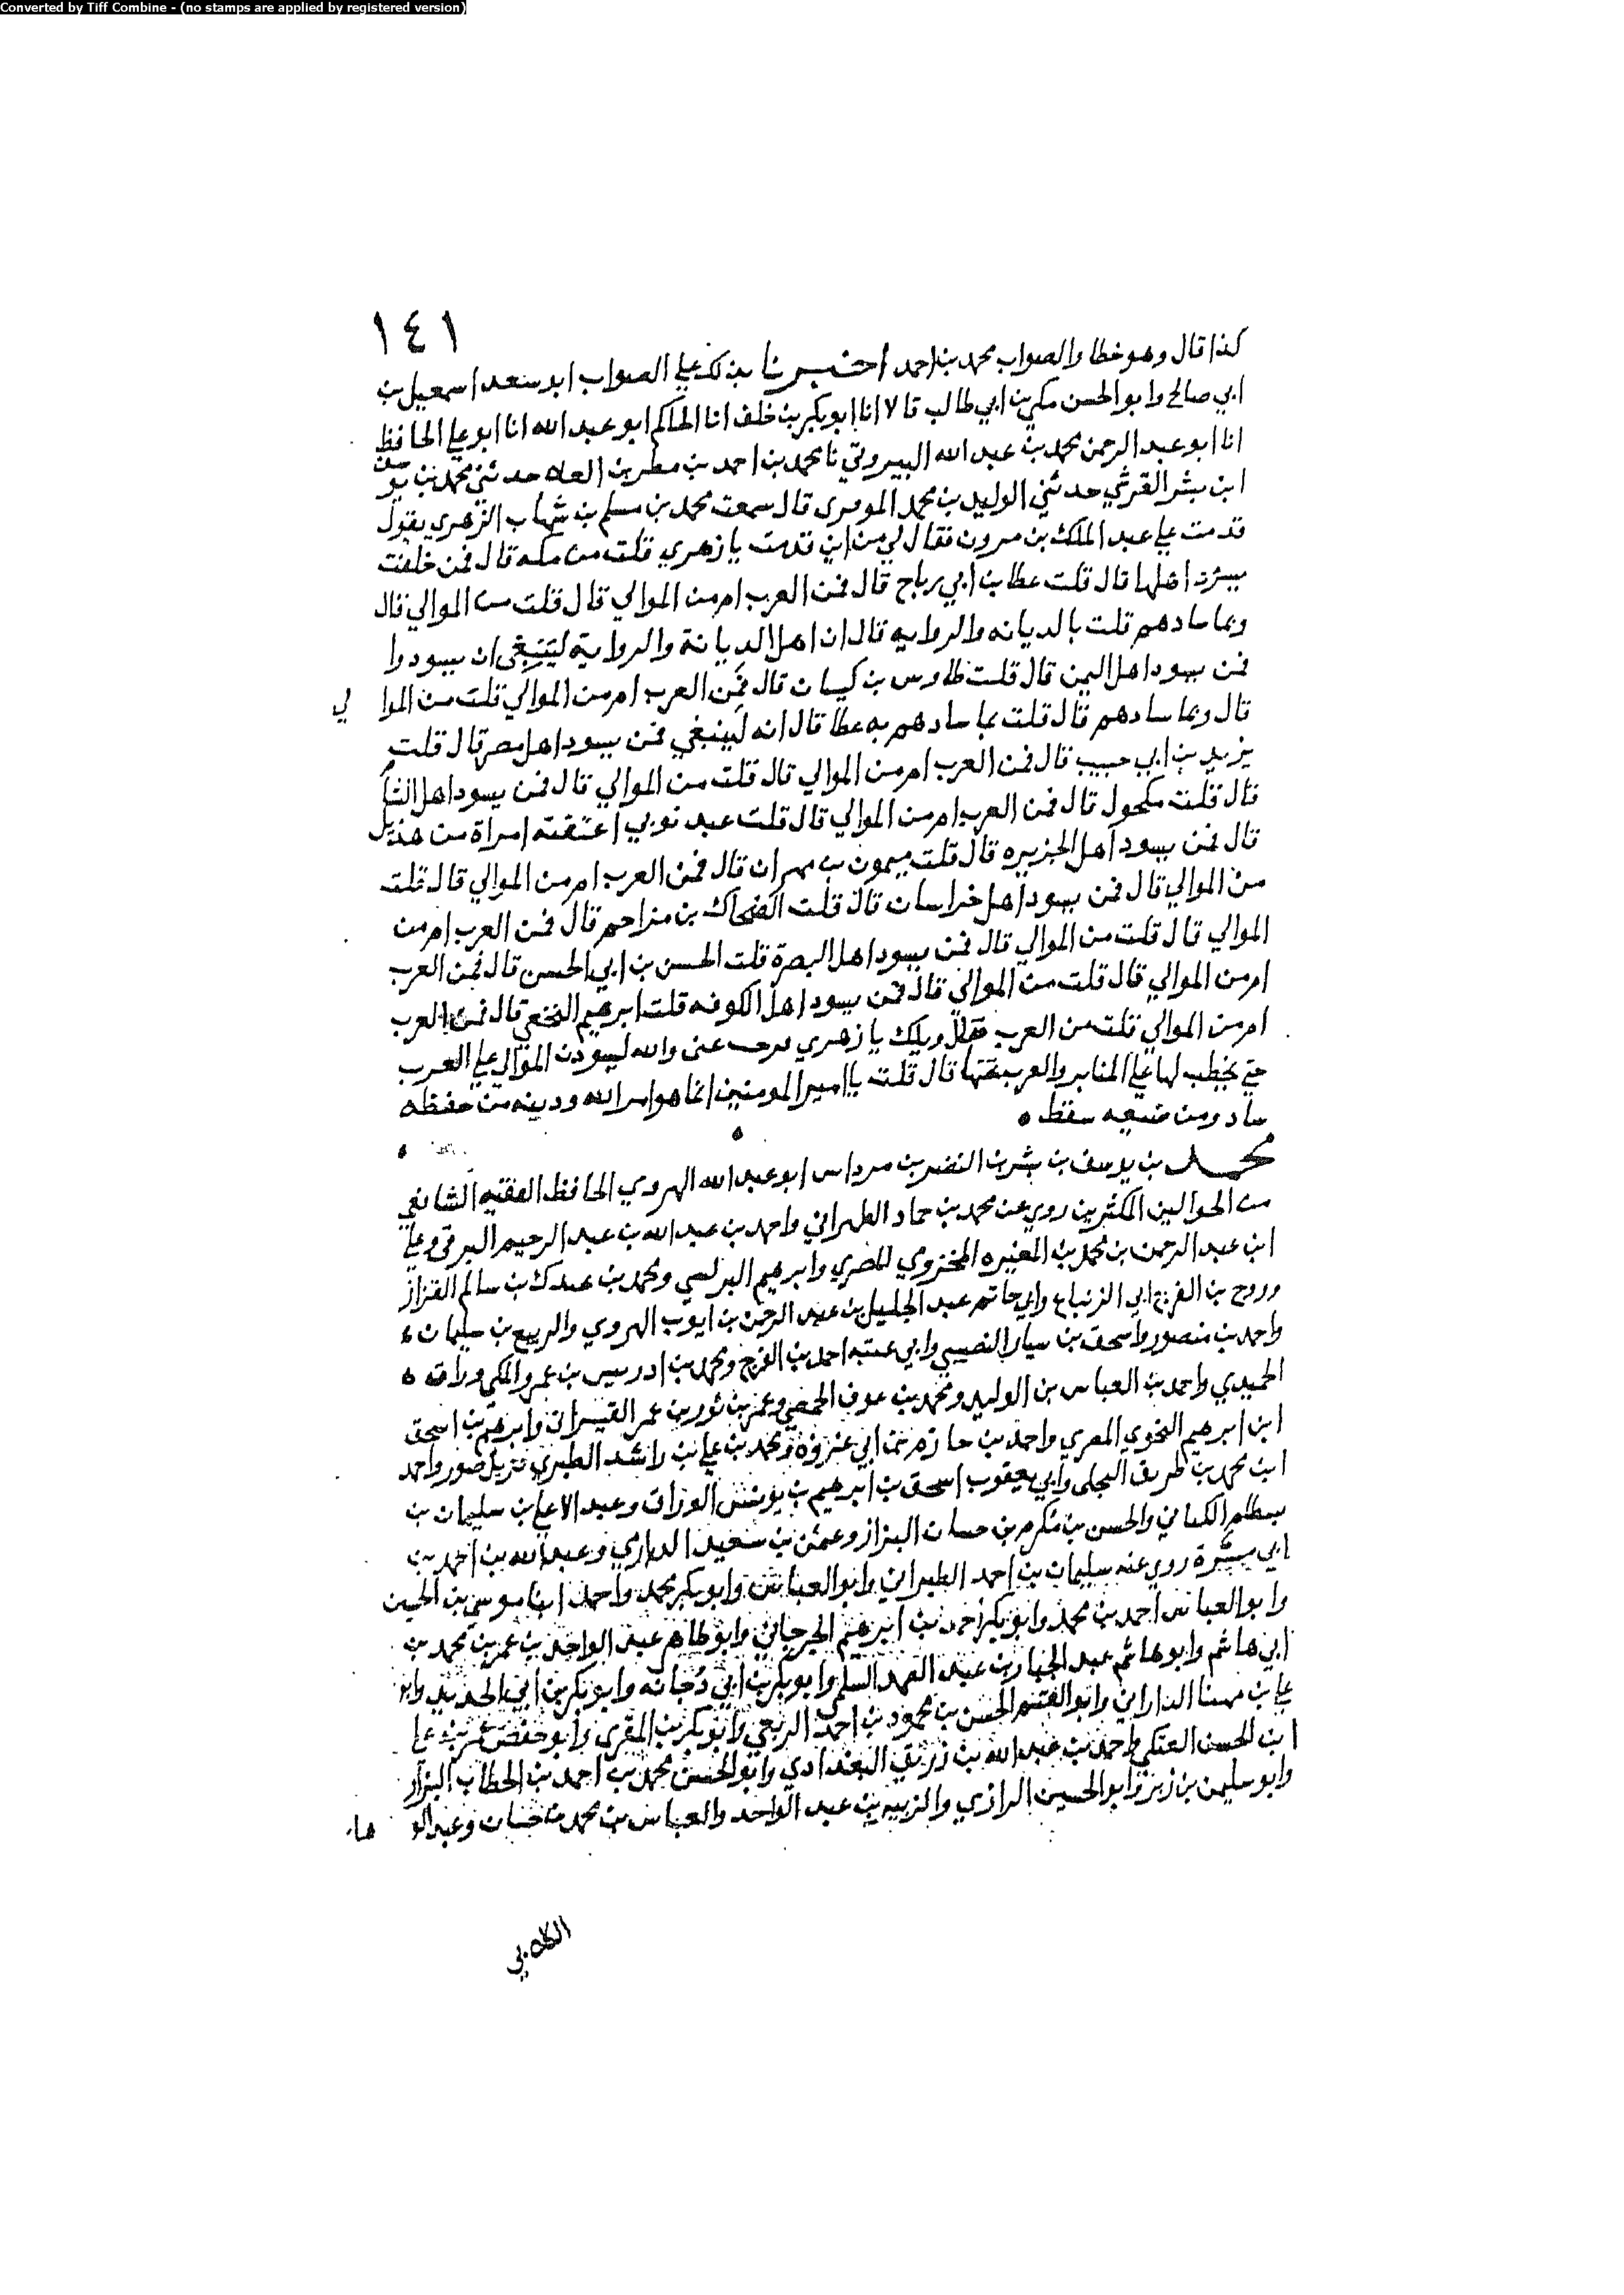 Converted by Tiff Combine - (no stamps are applied by registered version)
١٤١
كذا قال وهو خطا والصواب محمد بن احمد اخبرنا بذلك علي الصواب ابو سعد اسمعيل بن
ابي صالح وابو الحسن مكي بن ابي طالب قالا انا ابو بكر بن خلف انا الحاكم ابو عبد الله انا ابو علي الحافظ
انا ابو عبد الرحمن محمد بن عبد الله البيروتي نا محمد بن احمد بن مطر بن العلا حدثني محمد بن يوسف
ابن بشر القرشي حدثني الوليد بن محمد الموقري قال سمعت محمد بن مسلم بن شهاب الزهري يقول
قدمت علي عبد الملك بن مرون فقال لي من اين قدمت يا زهري قلت من مكه قال فمن خلفت
يسود اهلها قال قلت عطا بن ابي رباح قال فمن العرب ام من الموالي قال قلت من الموالي قال
وبما سادهم قلت بالديانه والروايه قال ان اهل الديانة والرواية لينبغي ان يسودوا
فمن يسود اهل اليمن قال قلت طاوس بن كيسان قال فمن العرب ام من الموالي قلت من الموالي
قال وبما سادهم قال قلت بما سادهم به عطا قال انه لينبغي فمن يسود اهل مصر قال قلت
يزيد بن ابي حبيب قال فمن العرب ام من الموالي قال قلت من الموالي قال فمن يسود اهل الشام
قال قلت مكحول قال فمن العرب ام من الموالي قال قلت عبد نوبي اعتقته امراة من هذيل
قال فمن يسود اهل الجزيره قال قلت ميمون بن مهران قال فمن العرب ام من الموالي قال قلت
من الموالي قال فمن يسود اهل خراسان قال قلت الضحاك بن مزاحم قال فمن العرب ام من
الموالي قال قلت من الموالي قال فمن يسود اهل البصرة قلت الحسن بن ابي الحسن قال فمن العرب
ام من الموالي قال قلت من الموالي قال فمن يسود اهل الكوفه قلت ابرهيم النخعي قال فمن العرب
ام من الموالي قلت من العرب قال ويلك يا زهري فرجت عني والله ليسودن الموالي علي العرب
حتي يخطب لها علي المنابر والعرب تحتها قال قلت يا امير المومنين انما هو امر الله ودينه من حفظه
ساد ومن ضيعه سقط
محمد بن يوسف بن بشر بن النضر بن مرداس ابو عبد الله الهروي الحافظ الفقيه الشافعي
من الجوالين المكثرين روي عن محمد بن حماد الطهراني واحمد بن عبد الله بن عبد الرحيم البرقي وعلي
ابن عبد الرحمن بن محمد بن المغيره المخزومي المصري وابرهيم البرلسي ومحمد بن عبدك بن سالم القزاز
وروح بن الفرج ابي الزنباع وابي حاتم عبد الجليل بن عبد الرحمن بن ايوب الهروي والربيع بن سليمان
واحمد بن منصور واسحق بن سيار النصيبي وابي عتبه احمد بن الفرج ومحمد بن ادريس بن عمر المكي وراق
الحميدي واحمد بن العباس بن الوليد ومحمد بن عوف الحمصي وعمر بن ثور بن عمر القيسراني وابرهيم بن اسحق
ابن ابرهيم النحوي المصري واحمد بن حازم بن ابي غرزه ومحمد بن علي بن راشد الطبري نزيل صور واحمد
ابن محمد بن طريف البجلي وابي يعقوب اسحق بن ابرهيم بن يونس الوراق وعبد الاعلي بن سليمان بن
بسطام الكناني والحسن بن مكرم بن حسان البزاز وعثمن بن سعيد الدارمي وعبد الله بن احمد بن
ابي مسرة روي عنه سليمان بن احمد الطبراني وابو العباس وابو بكر محمد واحمد ابنا موسي بن الحسين
وابو العباس احمد بن محمد وابو بكر احمد بن ابرهيم الجرجاني وابو طاهر عبد الواحد بن عمر بن محمد بن
ابي هاشم وابو هاشم عبد الجبار بن عبد الصمد السلمي وابو بكر بن ابي دجانه وابو بكر بن ابي الحديد وابو
علي بن مهنا الداراني وابو القسم الحسن بن محمود بن احمد الربعي وابو بكر بن المقري وابو حفص عمر بن علي
ابن الحسن العتكي واحمد بن عبد الله بن زريق البغدادي وابو الحسن محمد بن احمد بن الخطاب البزاز
وابو سليمن بن زبر وابو الحسين الرازي والزبير بن عبد الواحد والعباس بن محمد بن حسان وعبد الوهاب
الكلابي